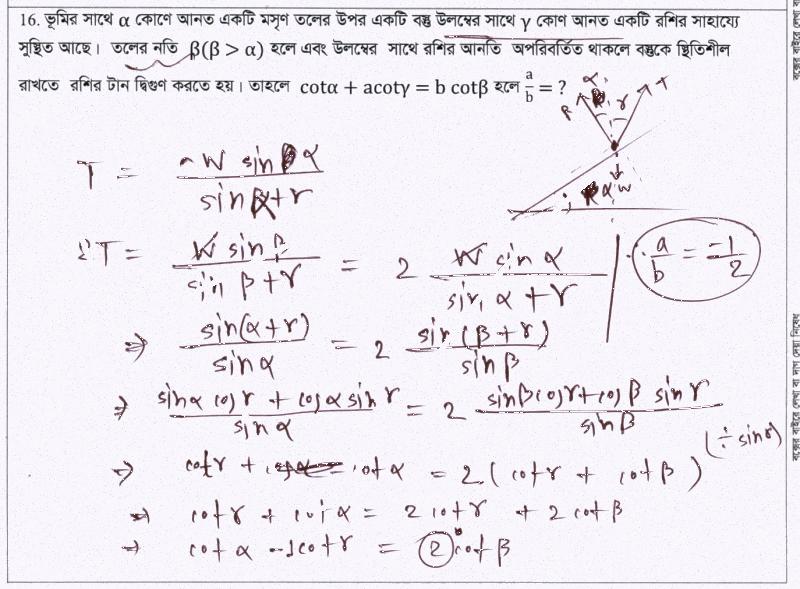 16. ভূমির সাথে α কোণে আনত একটি মসৃণ তলের উপর একটি বস্তু উলম্বের সাথে γ কোণ আনত একটি রশির সাহায্যে
সুস্থিত আছে। তলের নতি β(β > α) হলে এবং উলম্বের সাথে রশির আনতি অপরিবর্তিত থাকলে বস্তুকে স্থিতিশীল
রাখতে রশির টান দ্বিগুণ করতে হয়। তাহলে cotα + acotγ = b cotβ হলে a/b = ?
α γ R T
α W
T = W sin α / sin α+γ
2T = W sin β / sin β+γ = 2 W sin α / sin α+γ
∴ a/b = -1/2
⇒ sin(α+γ) / sin α = 2 sin(β+γ) / sin β
⇒ sinα cosγ + cosα sinγ / sin α = 2 sinβcosγ+cosβ sinγ / sinβ
(÷ sinγ)
⇒ cotγ + cotα = 2(cotγ + cotβ)
⇒ cotγ + cotα = 2cotγ + 2cotβ
⇒ cotα -1cotγ = 2cotβ